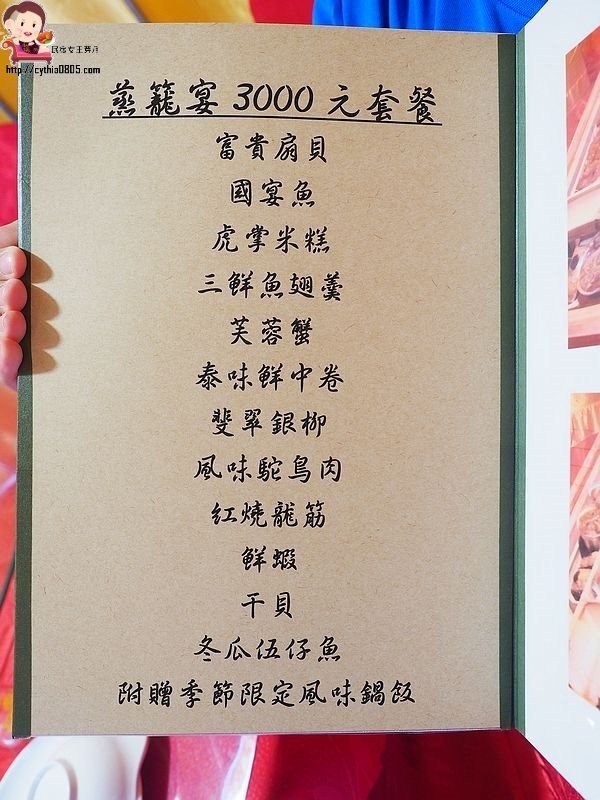 民宿女王芽月
http://cythia0805.com
蒸籠宴 3000 元套餐
富貴扇貝
國宴魚
虎掌米糕
三鮮魚翅羹
芙蓉蟹
泰味鮮中卷
斐翠銀柳
風味駝鳥肉
紅燒龍筋
鮮蝦
干貝
冬瓜伍仔魚
附贈季節限定風味鍋飯